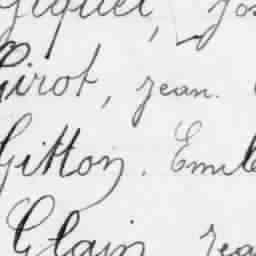 Giquel, Jos
Girot, Jean.
Gitton. Emile
Glain Jea